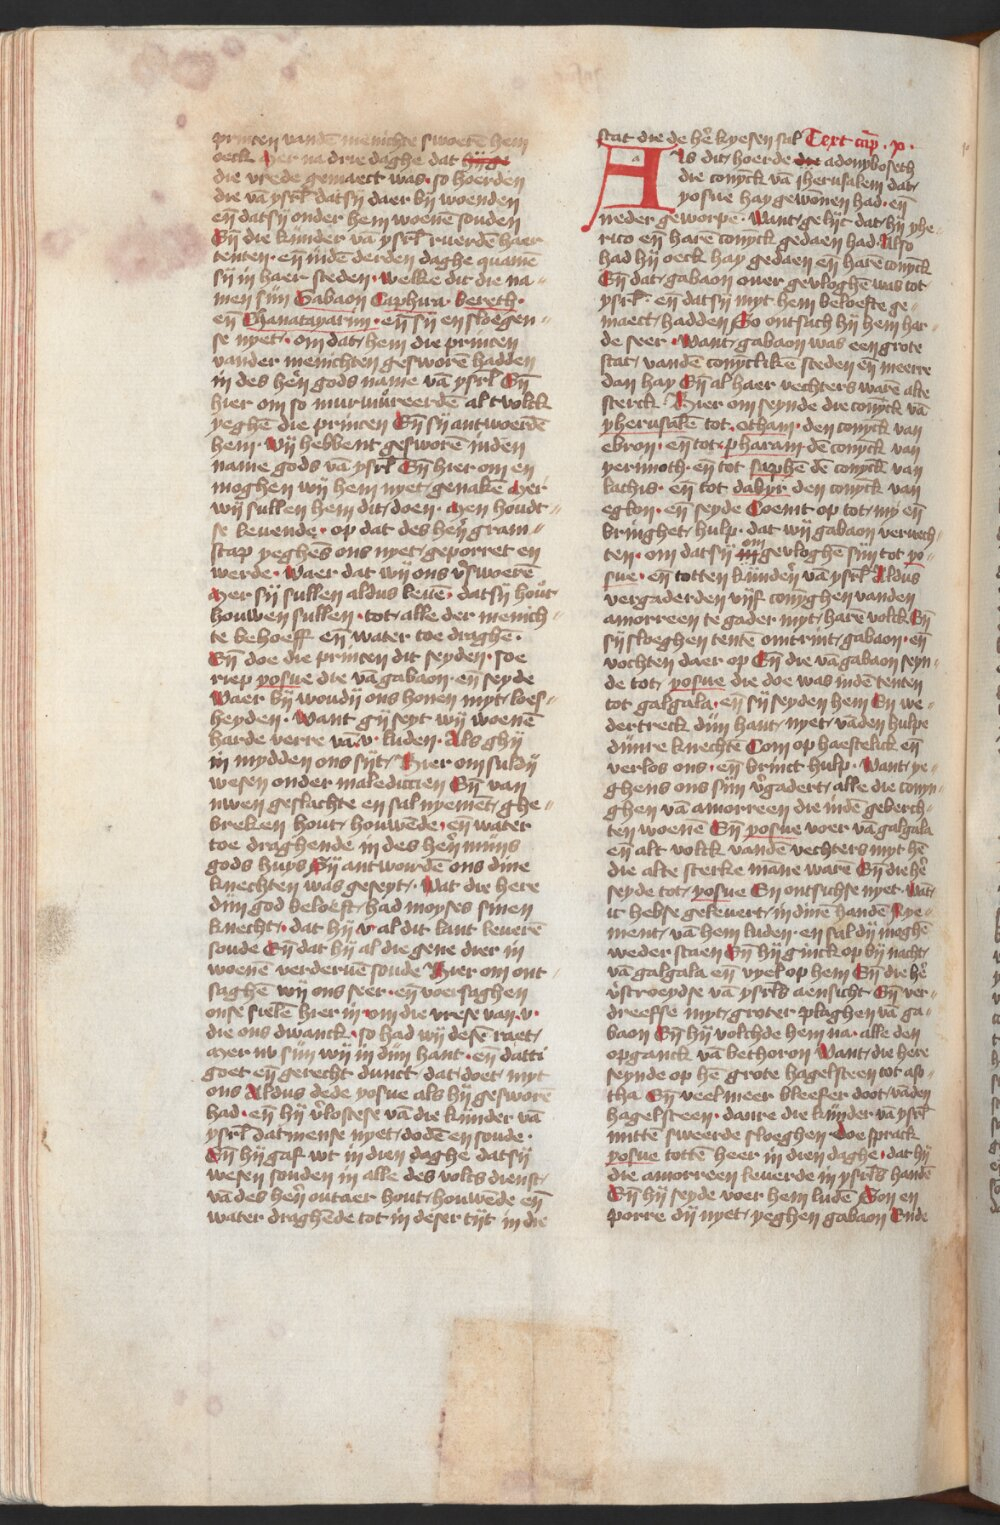 princen vandē menichte swoerē hem
oeck Mer na drie daghe dat hijge
die vrede gemaect was · so hoerden
die vā ysrl̄ datsij daer bij woenden
eñ datsij onder hem woenē souden
Eñ die kinder vā ysrl̄ ruerdē haer
tenten · eñ indē derden daghe quamē
sij in haer steden · welke dit die na-
men sijn Gabaon Caphira · bereth ·
eñ Chariatayarim · eñ sij en sloegen
se nyet · om dat hem die princen
vander menichten gesworē hadden
in des hēn gods name vā ysrl̄ Eñ
hier om so murmureerdē alt volck
yeghē die princen Eñ sij antwoerdē
hem · Wij hebbent gesworē indē
name gods vā ysrl̄ Eñ hier om en
moghen wij hem nyet genakē Mer
wij sullen hem dit doen · Men houdt
se leuende · op dat des hēn gram
scap yeghēs ons nyet geporret en
werde · Waer dat wij ons v̄sworē
Mer sij sullen aldus leuē · datsij hout
houwen sullen · tot alle der menich
te behoeff eñ water toe draghē ·
Eñ doe die princen dit seyden · soe
riep yosue die vā gabaon · eñ seyde
Waer bij woudij ons honen myt loes
heyden · Want gij seyt wij woenē
harde verre vā · v · luden · Als ghij
in mydden ons sijt Hier om suldij
wesen onder maledictien Eñ van
uwen geslachte en sal nyemēt ghe-
breken hout houwēde · eñ water
toe draghende in des hēn mijns
gods huys Sij antwordē ons dine
knechten was geseyt · Wat die here
dijn god beloeft had moyses sinen
knecht · dat hij v · al dit lant leuerē
soude Eñ dat hij al die gene dier in
woenē verderuē soude Hier om ont-
saghē wij ons seer · eñ voersaghen
onse sielē hier in · om die vrese van · v ·
die ons dwanck · so had wij desē raet
Mer nv sijn wij in dijn hant · eñ datti
goet eñ gerecht dunct dat doet myt
ons Aldus dede yosue als hij gesworē
had · eñ hij v̄lostese vā die kinder vā
ysrl̄ datmense nyet dodē en soude ·
Eñ hij gaf wt in dien daghe datsij
wesen souden in alle des volcs dienst
vā des hēn outaer hout houwēde eñ
water draghēde tot in deser tijt in die
stat die de hē kyesen sal Text cap̄ · x ·
Als dit hoerde die adonyboseth
die conynck vā iherusalem dat
yosue hay gewonen had · eñ
neder geworpē · Want gelijc dat hij yhe-
rico eñ harē conynck gedaen had · Also
had hij oeck hay gedaen eñ harē conynck
Eñ dat gabaon ouer gevloghē was tot
ysrl̄ · eñ datsij myt hem beloefte ge-
maect hadden So ontsach hij hem har-
de seer · Want gabaon was een grote
stat vandē conyclikē steden eñ meerre
dan hay Eñ al haer vechters warē alte
sterck · Hier om seynde die conynck vā
yherusalē tot · otham · den conynck van
ebron · eñ tot pharam · dē conynck van
yermoth · eñ tot saphē dē conynck van
lachis · eñ tot dabyr den conynck van
eglon · eñ seyde Coemt op tot my eñ
bringhet hulp · dat wij gabaon verwech-
ten · om datsij om gevloghē sijn tot yo-
sue · eñ totten kinderē vā ysrl̄ Aldus
vergaderden vijf conyghen vanden
amorreen te gader myt harē volck Eñ
sij sloeghen tentē omtrint gabaon · eñ
vochten daer op Eñ die vā gabaon seyn-
de tot yosue die doe was indē tenten
tot galgala · eñ sij seyden hem En we-
dertreck dijn hant nyet vādē hulpe
dijnre knechtē Com op haestelick eñ
verlos ons · eñ brinct hulp · Want ye-
ghens ons sijn v̄gadert alle die conyn-
ghen vā amorreen die indē geberch-
ten woenē Eñ yosue voer vā galgala
eñ alt volck vandē vechters myt hē
die alte sterke māne warē Eñ die hē
seyde tot yosue En ontsichse nyet Wāt
ic hebse geleuert in dinē handē Nye-
ment vā hem luden · en sal dij moghē
weder staen Eñ hij ginck op bij nacht
vā galgala eñ vyel op hem Eñ die hē
v̄stroeydse vā ysrl̄s aensicht Eñ ver-
dreefse myt groter plaghen vā ga-
baon Eñ hij volchde hem na · alle den
opganck vā bethoron Want die here
seynde op hē grote hagelsteen tot aso-
tha Eñ veel meer bleefer doot vāden
hagelsteen · danre die kinder vā ysrl̄
mittē sweerde sloeghen · Doe sprack
yosue tottē heer in dien daghe · dat hij
die amorreen leuerde in ysrl̄s handē
Eñ hij seyde voer hem ludē Son en
porre dij nyet yeghen gabaon Ende